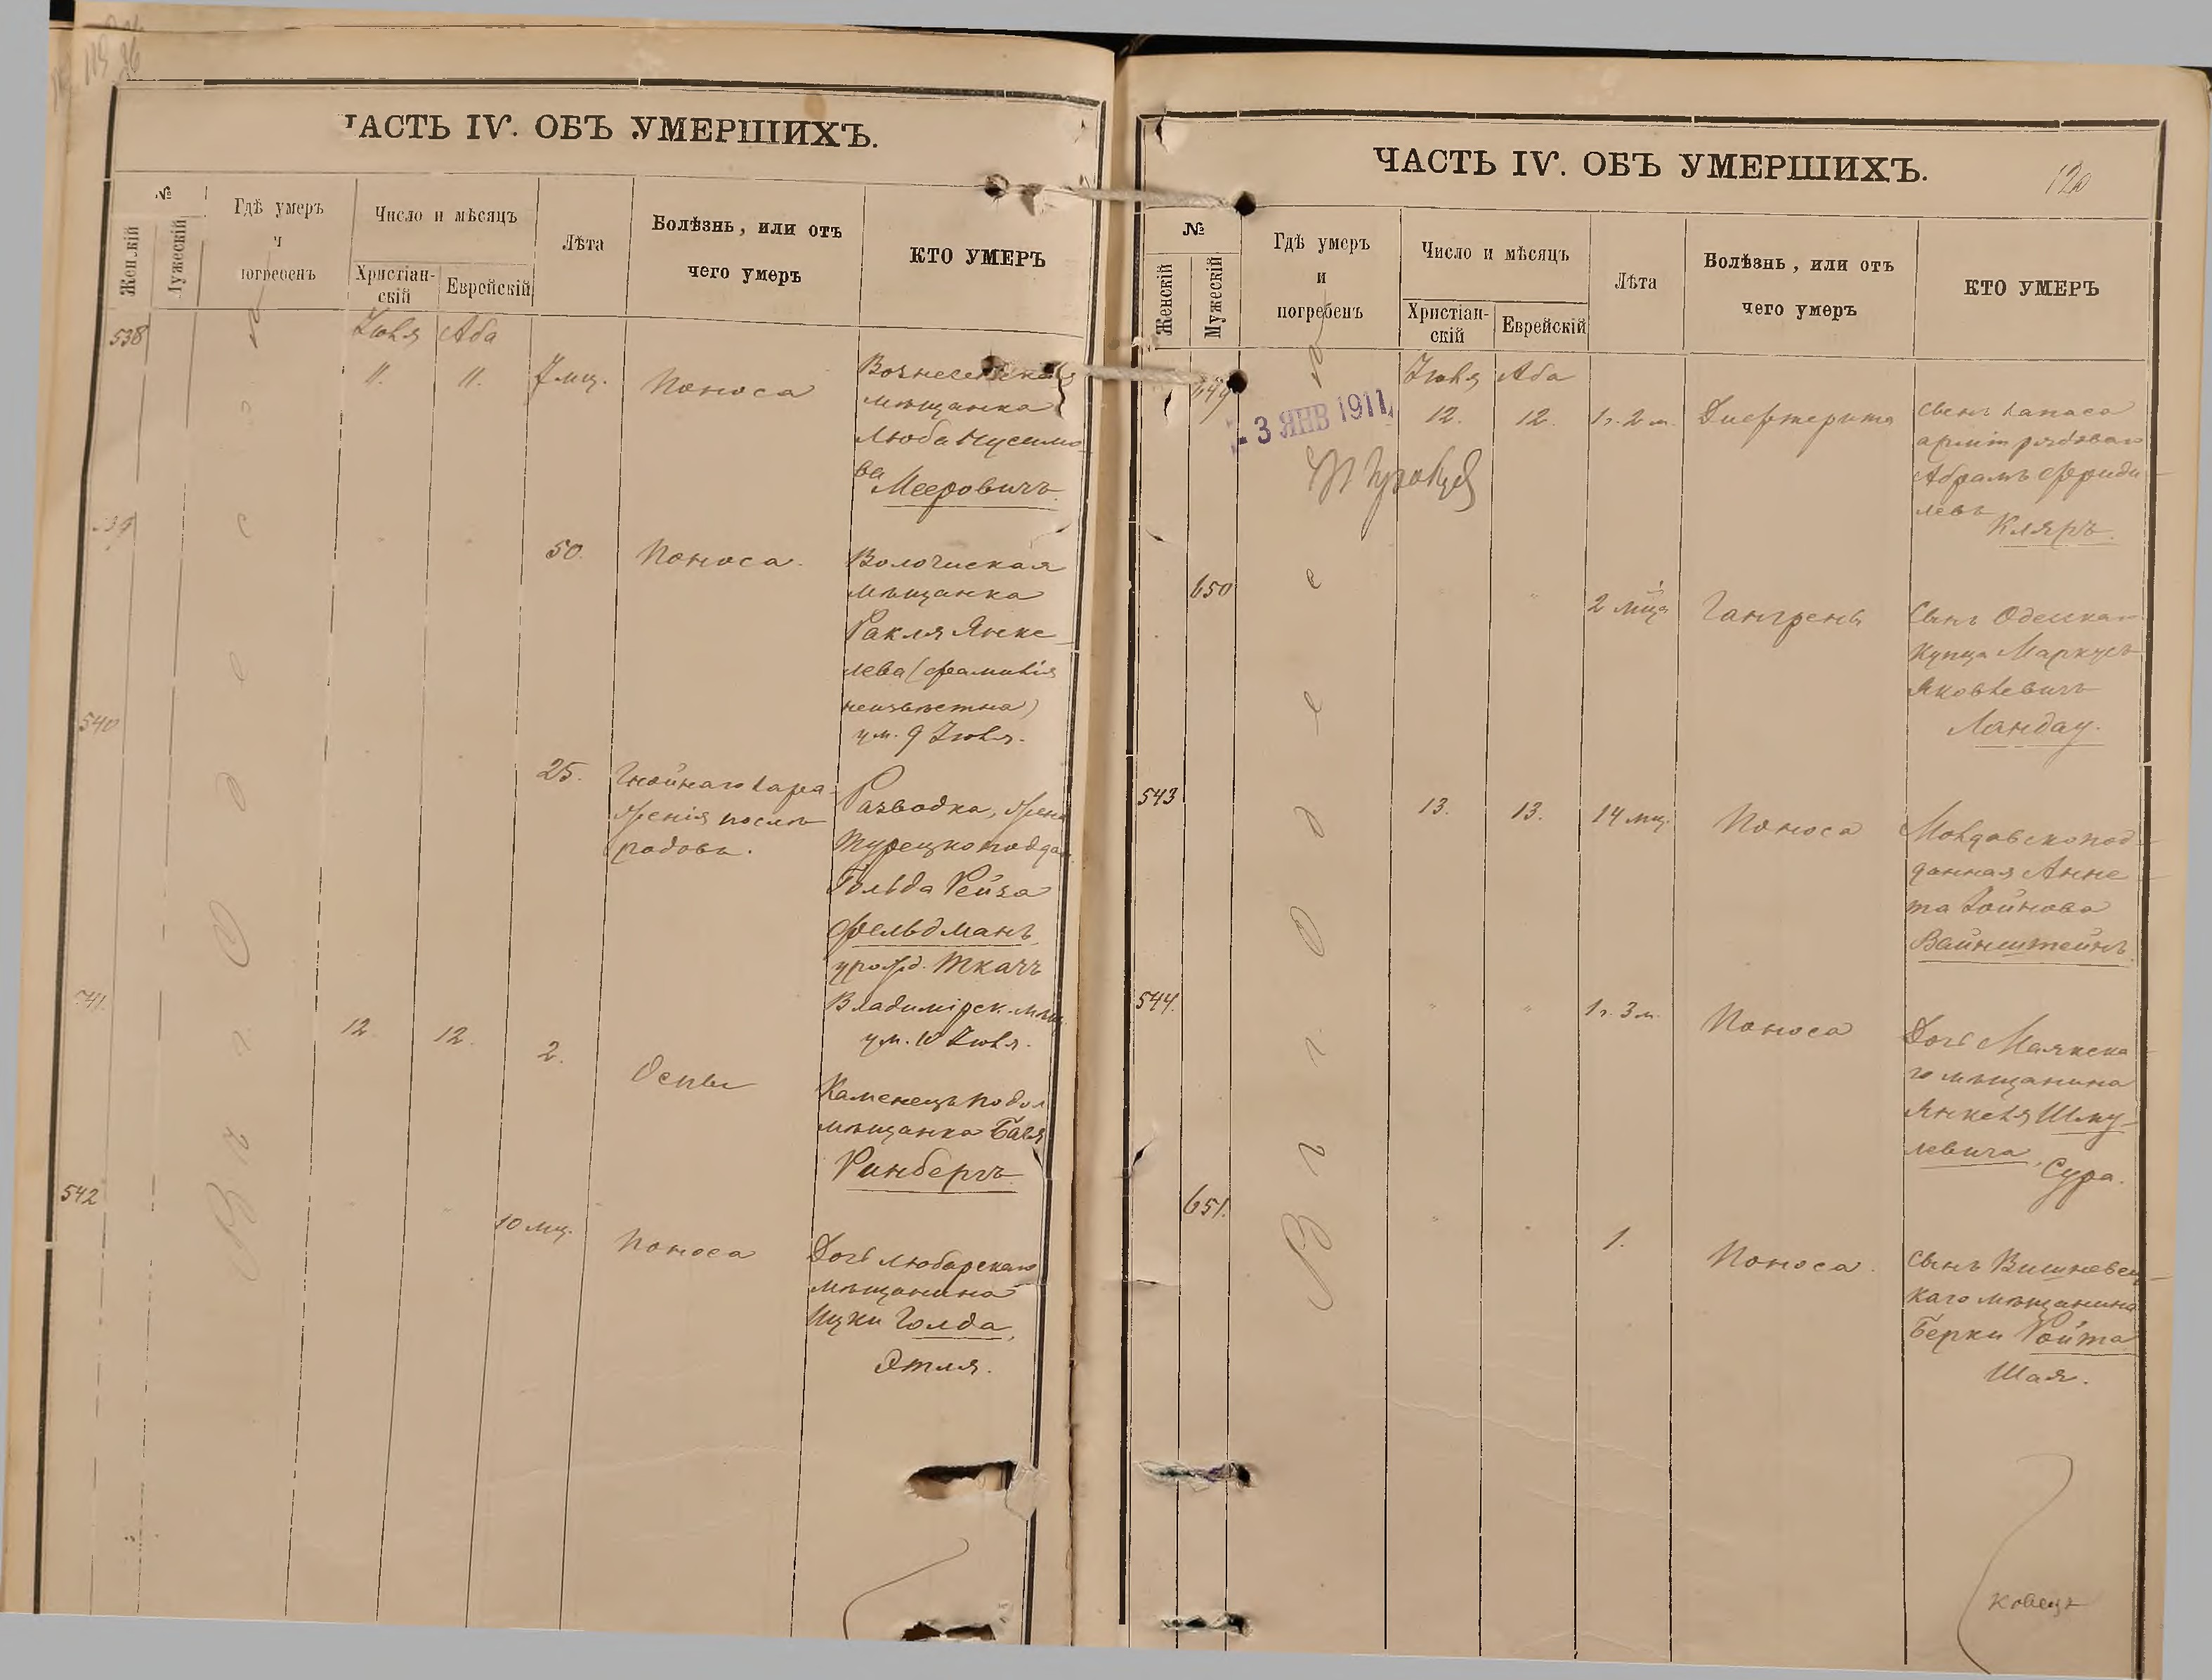 119
ЧАСТЬ IV. ОБЪ УМЕРШИХЪ.
№
Женскій
Мужескій
Гдѣ умеръ
и
погребенъ
Число и мѣсяцъ
Христіан-
скій
Еврейскій
Лѣта
Болѣзнь, или отъ
чего умеръ
КТО УМЕРЪ
Въ г. Одессѣ
538
Іюля Аба
11. 11. 7 мц. Поноса
Вознесенская
мѣщанка
Люба Нусимо-
ва Мееровичъ.
539
" " 50. Поноса.
Волочиская
мѣщанка
Рахля Янке-
лева (фамилія
неизвѣстна)
ум. 9 Іюля.
540
" " 25. Гнойнаго зара-
женія послѣ
родовъ.
Разводка, жена
турецкоподдан.
Гольда Рейза
Фельдманъ
урожд. Ткачъ
Владимірск. мѣщ.
ум. 10 Іюля.
541.
12. 12. 2. Оспы
Каменецъ подол
мѣщанка Бася
Ринбергъ.
542
" " 10 мц. Поноса
Дочь Любарскаго
мѣщанина
Ицки Голда,
Этля.
ЧАСТЬ IV. ОБЪ УМЕРШИХЪ.
120
№
Женскій
Мужескій
Гдѣ умеръ
и
погребенъ
Число и мѣсяцъ
Христіан-
скій
Еврейскій
Лѣта
Болѣзнь, или отъ
чего умеръ
КТО УМЕРЪ
Въ г. Одессѣ
649
- 3 ЯНВ 1911
Іюля Аба
12. 12. 1 г. 2 м. Дифтерита
Сынъ запаса
арміи рядоваго
Абрамъ Фриди-
левъ
Кляръ.
650
" 2 мца Гангрены
Сынъ Одесскаго
купца Маркусъ
Яковлевичъ
Ландау.
543
13. 13. 14 мц. Поноса
Молдавскопод-
данная Анне-
та Зойнова
Вайнштейнъ.
544.
" " 1 г. 3 м. Поноса
Дочь Маякска-
го мѣщанина
Янкеля Шму-
левича, Сура.
651.
" " 1. Поноса.
Сынъ Вишневец-
каго мѣщанина
Берки Ройта
Шая.